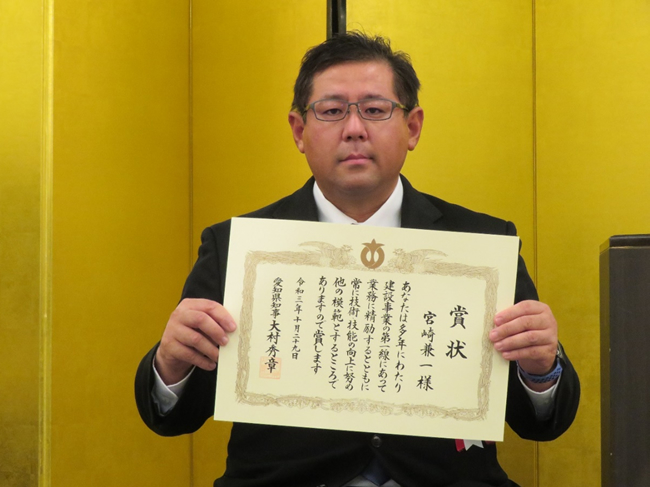 賞状
宮崎兼一様
あなたは多年にわたり
建設事業の第一線にあって
業務に精励するとともに
常に技術技能の向上に努め
他の模範とするところで
ありますので賞します
令和三年十月二十九日
愛知県知事 大村秀章